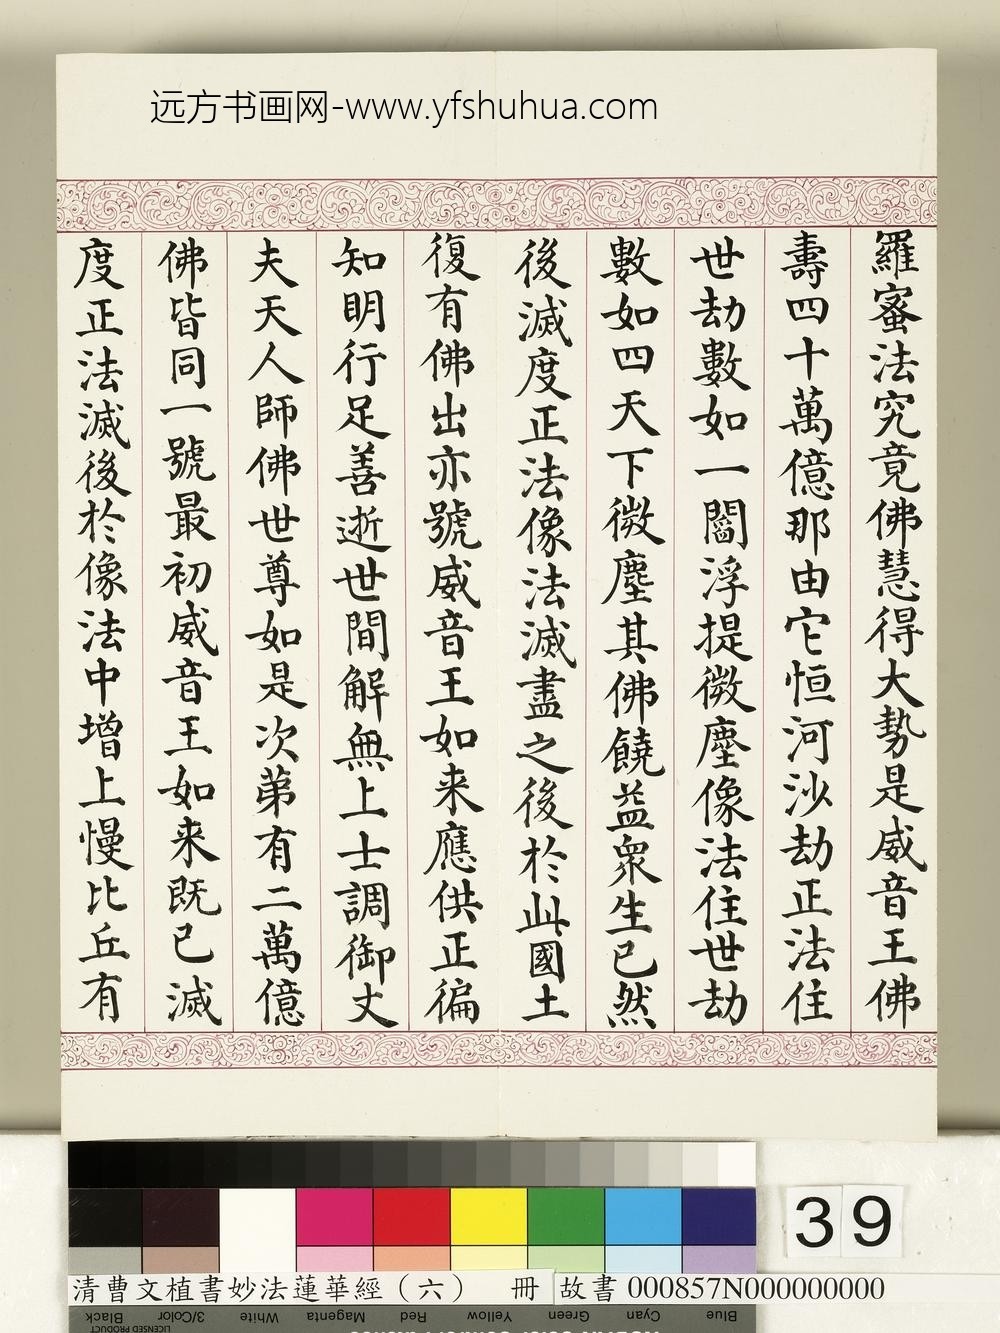 远方书画网-www.yfshuhua.com
羅蜜法究竟佛慧得大勢是威音王佛
壽四十萬億那由它恒河沙劫正法住
世劫數如一閻浮提微塵像法住世劫
數如四天下微塵其佛饒益眾生已然
後滅度正法像法滅盡之後於此國土
復有佛出亦號威音王如来應供正徧
知明行足善逝世間解無上士調御丈
夫天人師佛世尊如是次第有二萬億
佛皆同一號最初威音王如来既已滅
度正法滅後於像法中增上慢比丘有
39
清曹文植書妙法蓮華經（六） 冊 故書 000857N000000000
Black 3/Color White Magenta Red Yellow Green Cyan Blue
LICENSED PRODUCT